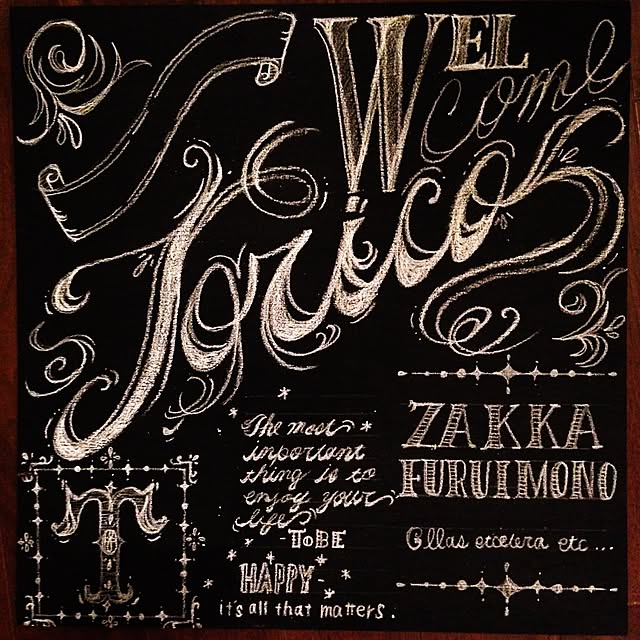 WEL
come
Torico
The most
important
thing is to
enjoy your
life
- TO BE
HAPPY -
it's all that matters.
ZAKKA
FURUIMONO
Gllas etcetera etc ...
T